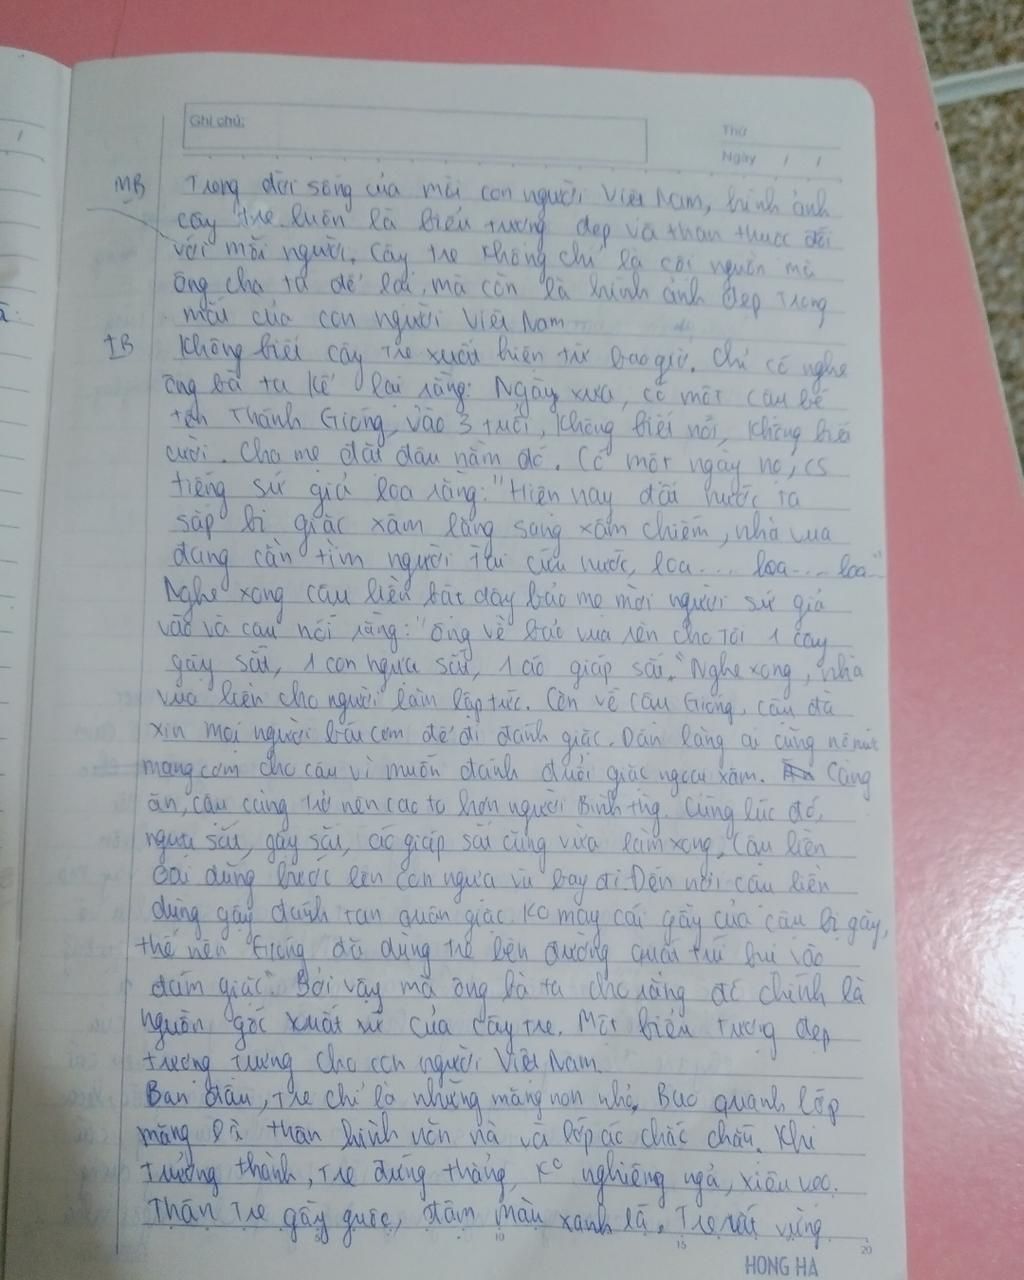 Ghi chú:
Thứ
Ngày / /
MB Trong đời sống của mỗi con người Việt Nam, hình ảnh
cây tre luôn là biểu tượng đẹp và thân thuộc đối
với mỗi người. Cây tre không chỉ là cội nguồn mà
ông cha ta để lại, mà còn là hình ảnh đẹp trong
mắt của con người Việt Nam
TB Không biết cây tre xuất hiện từ bao giờ. Chỉ có nghe
ông bà ta kể lại rằng: Ngày xưa, có một cậu bé
tên Thánh Gióng, vào 3 tuổi, không biết nói, không biết
cười. Cha mẹ đặt đâu nằm đó. Có một ngày nọ, có
tiếng sứ giả loa rằng: "Hiện nay đất nước ta
sắp bị giặc xâm lăng sang xâm chiếm, nhà vua
đang cần tìm người tài cứu nước, loa... loa... loa"
Nghe xong cậu liền bật dậy bảo mẹ mời người sứ giả
vào và cậu nói rằng: "Ông về bảo vua rèn cho tôi 1 cây
gậy sắt, 1 con ngựa sắt, 1 áo giáp sắt." Nghe xong, nhà
vua liền cho người làm lập tức. Còn về cậu Gióng, cậu đã
xin mọi người bát cơm để đi đánh giặc. Dân làng ai cũng nô nức
mang cơm cho cậu vì muốn đánh đuổi giặc ngoại xâm. Càng
ăn, cậu càng trở nên cao to hơn người bình thg. Cùng lúc đó,
ngựa sắt, gậy sắt, áo giáp sắt cũng vừa làm xong, Cậu liền
oai dũng bước lên con ngựa và bay đi. Đến nơi cậu liền
dùng gậy đánh tan quân giặc ko may cái gậy của cậu bị gãy,
thế nên Gióng đã dùng tre bên đường quật túi bụi vào
đám giặc" Bởi vậy mà ông bà ta cho rằng đó chính là
nguồn gốc xuất xứ của cây tre. Một biểu tượng đẹp
tượng trưng cho con người Việt Nam.
Ban đầu, tre chỉ là những măng non nhỏ, Bao quanh lớp
măng là thân hình nõn nà và lớp áo chắc chắn. Khi
trưởng thành, tre đứng thẳng, ko nghiêng ngả, xiêu vẹo.
Thân tre gầy guộc, đậm màu xanh lá. Tre rất vững
10 15 20
HONG HA